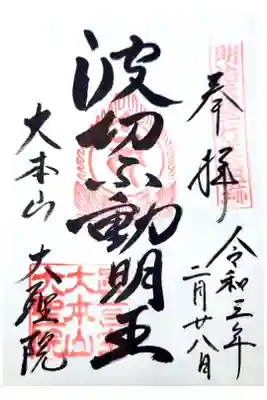 奉拝
令和三年
二月廿八日
波切不動明王
大本山 大聖院
大本山